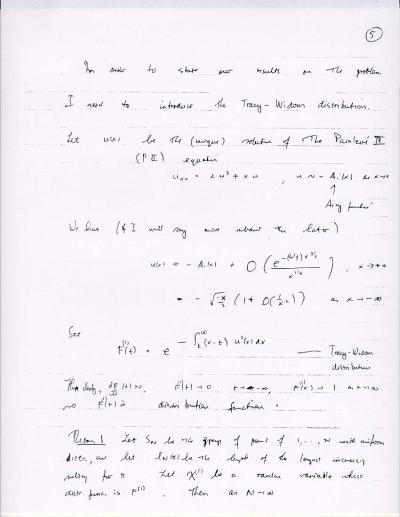 5
In order to state our results on the problem
I need to introduce the Tracy-Widom distribution.
Let u(x) be the (unique) solution of the Painlevé II
(PII) equation
u_xx = 2u³ + xu , u ~ -Ai(x) as x→∞
↑
Airy function
We have (& I will say more about this later)
u(x) = -Ai(x) + O( e^{-(4/3)x^{3/2}} / x^{1/4} ) , x→+∞
= -√(-x/2) (1 + O(1/x²)) as x→-∞
Set
F^{(1)}(t) = e^{-∫_t^∞ (x-t) u²(x) dx} — Tracy-Widom
distribution
F(t)→0 t→-∞, F(t)→1 as t→∞
so F^{(1)} is distribution function.
Theorem 1 Let S_N be the group of perms of 1,..., N with uniform
distr., and let l_N(π) be the length of the longest increasing
subseq for π Let χ^{(1)} be a random variable whose
distr. func. is F^{(1)}. Then as N→∞